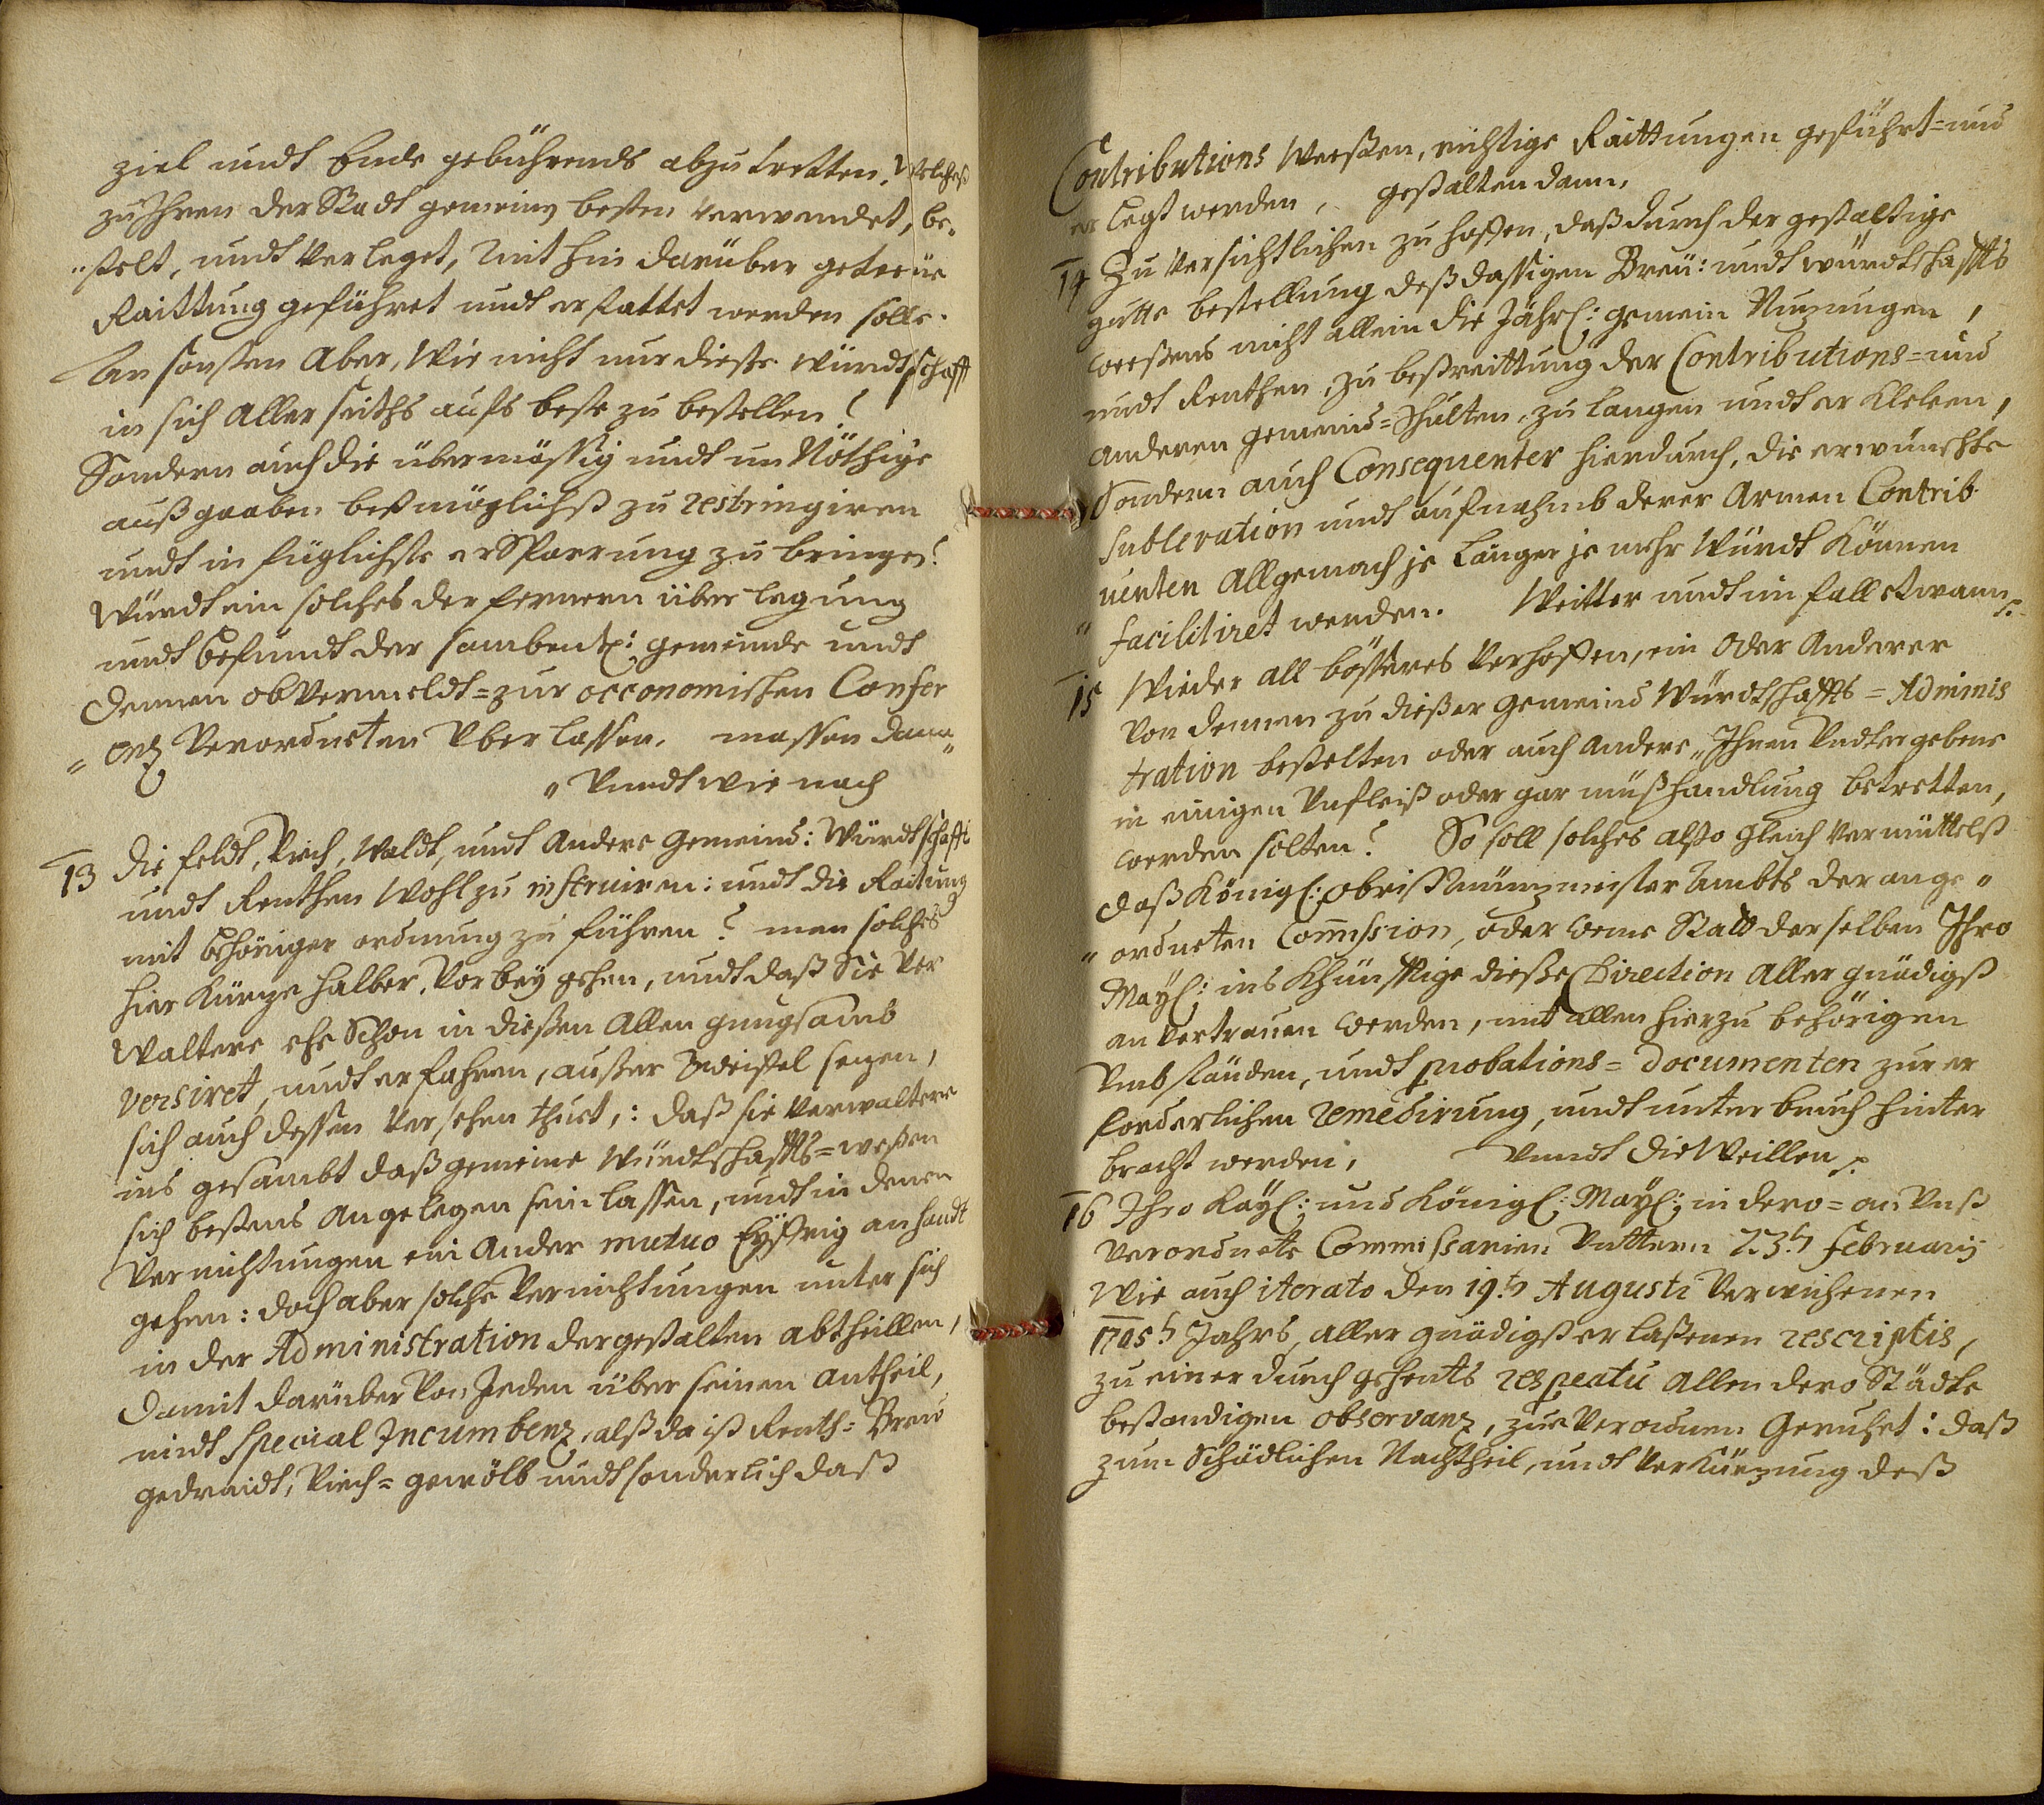 ziel undt Ende gebührends abzutretten, Welches
zu Ihren der Stadt gemeinen besten verwendet, be„
„stelt, undt verleget, mit hin darüber getreüe
Raittung geführet undt erstattet werden solle.
An sonsten Aber, Wie nicht nur dieße Würdtschafft
in sich Aller seiths aufs beste zu bestellen?
Sondern auch die übermässig undt un Nöthige
außgaaben bestmöglichst zu restringiren
undt in füglichste erSparrung zu bringen?
Würdt ein solches der fernern über legung
undt Befundt der sambentl: gemeinde undt
denen obvermeldt=zur oeconomischen Confe
„renz Verordneten Überlassen. massen dann„
„Vundt wie nach
13 die feldt, Viech, Waldt, undt Andere Gemeind: Würdtschafft
undt Renthen Wohl zu instruiren: undt die Raitung
mit behöriger ordnung zu führen? man solches
hier Kürze halber, Vorbey gehen, undt daß Sie Ver
Waltere ehe Schon in dießen Allen gnugsamb
versiret, undt erfahren, außer Zweiffel sezen,
sich auch dessen Versehen thuet,: daß sie Verwaltere
ins gesambt daß gemeine Würdtschaffts=weßen
sich bestens Angelegen sein lassen, undt in denen
Verrichtungen ein Ander mutuo Eyffrig anhandt
gehen: doch aber solche Verrichtungen unter sich
in der Administration dergestalten abtheillen,
damit darüber Von Jeden über seinen Antheil,
undt special Incumbenz, alß da ist Renth= Breü
gedraidt, Viech= gewölb undt sonderlich daß
Contributions Weeßen, richtige Raittungen geführt=und
er legt werden, gestalten dann,
14 Zu Versichtlichen zu hoffen, daß durch der gestaltige
gutte bestellung deß dassigen Breü: undt würdtschaffts
Weeßens nicht allein die Jährl: gemein Nuzungen,
undt Renthen, zu bestreittung der Contributions=und
Anderen gemeind=Schulten, zu langen undt er Kleken,
Sondern auch Consequenter hierdurch, die erwünschte
sublevation undt aufnahmb derer Armen Contrib
uenten Allgemach je länger je mehr Würdt Können
„ facilitiret werden. Weitter undt im fall etwann
15 Wieder all bösseres Verhoffen, ein Oder Anderer
Von denen zu dießer Gemeind Würdtschaffts=Adminis
tration bestelten oder auch Andere, Ihnen Undtergebene
in einigen Unfleiß oder gar müßhandlung betretten,
werden solten? So soll solches alßo gleich vermüttelß
daß Königl: Obrist Münzmeister Ambts der ange„
„ordneten Commission, oder Weme Statt derselben Ihro
Mayl: ins Khünfftige dieße Direction Aller gnädigst
an Vertrauen werden, mit allen hierzu behörigen
Umbständen, undt probations= documenten zur er
forderlichen remedirung, undt unterbruch hinter
bracht werden, Vundt die Weillen
16 Ihro Kayl: und Königl: Mayl: in dero=an Unß
Verordnete Commissarien Untern 23t februarij
Wie auch iterato den 19t Augusti Verwichenen
1705t Jahrs, aller gnädigst erlaßenen rescriptis,
zu einer durch gehents respectu Allen dero Städte
bestandigen observanz, zue Verordnen Geruhet: daß
zum Schädlichen Nachtheil, undt Verkürzung deß